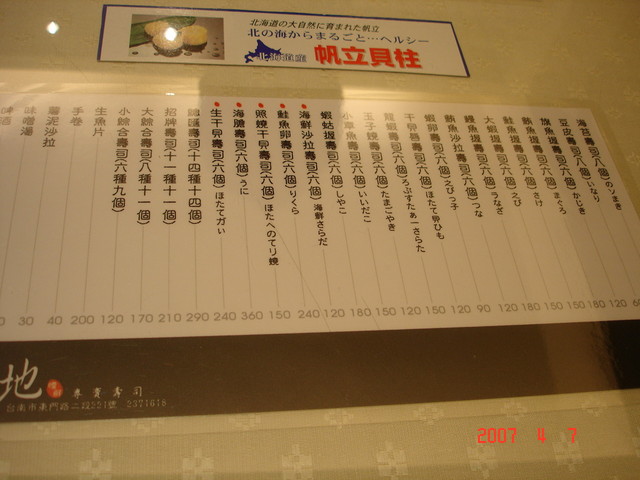 北海道の大自然に育まれた帆立
北の海からまるごと…ヘルシー
北海道産 帆立貝柱
海苔壽司(八個)のりまき
豆皮壽司(八個)いなり
旗魚握壽司(六個)かじき
鮪魚握壽司(六個)まぐろ
鮭魚握壽司(六個)さけ
大蝦握壽司(六個)えび
鰻魚握壽司(六個)うなぎ
鮪魚沙拉壽司(六個)つな
蝦卵壽司(六個)えびっ子
干貝唇壽司(六個)ほたて卵ひも
龍蝦壽司(六個)ろぶすたぁーさらた
玉子燒壽司(六個)たまごやき
小章魚壽司(六個)いいだこ
蝦蛄握壽司(六個)しやこ
海鮮沙拉壽司(六個)海鮮さらだ
鮭魚卵壽司(六個)いくら
照燒干貝壽司(六個)ほたへのてり燒
海膽壽司(六個)うに
生干貝壽司(六個)ほたてがい
總匯壽司(十四種十四個)
招牌壽司(十一種十一個)
大綜合壽司(八種十一個)
小綜合壽司(六種九個)
生魚片
手卷
薯泥沙拉
味噌湯
30 40 200 120 170 210 290 240 360 150 240 120 180 150 120 150 120 90 120 180 120 150 180 120
地
專賣壽司
台南市東門路二段251號 2371618
2007 4 7